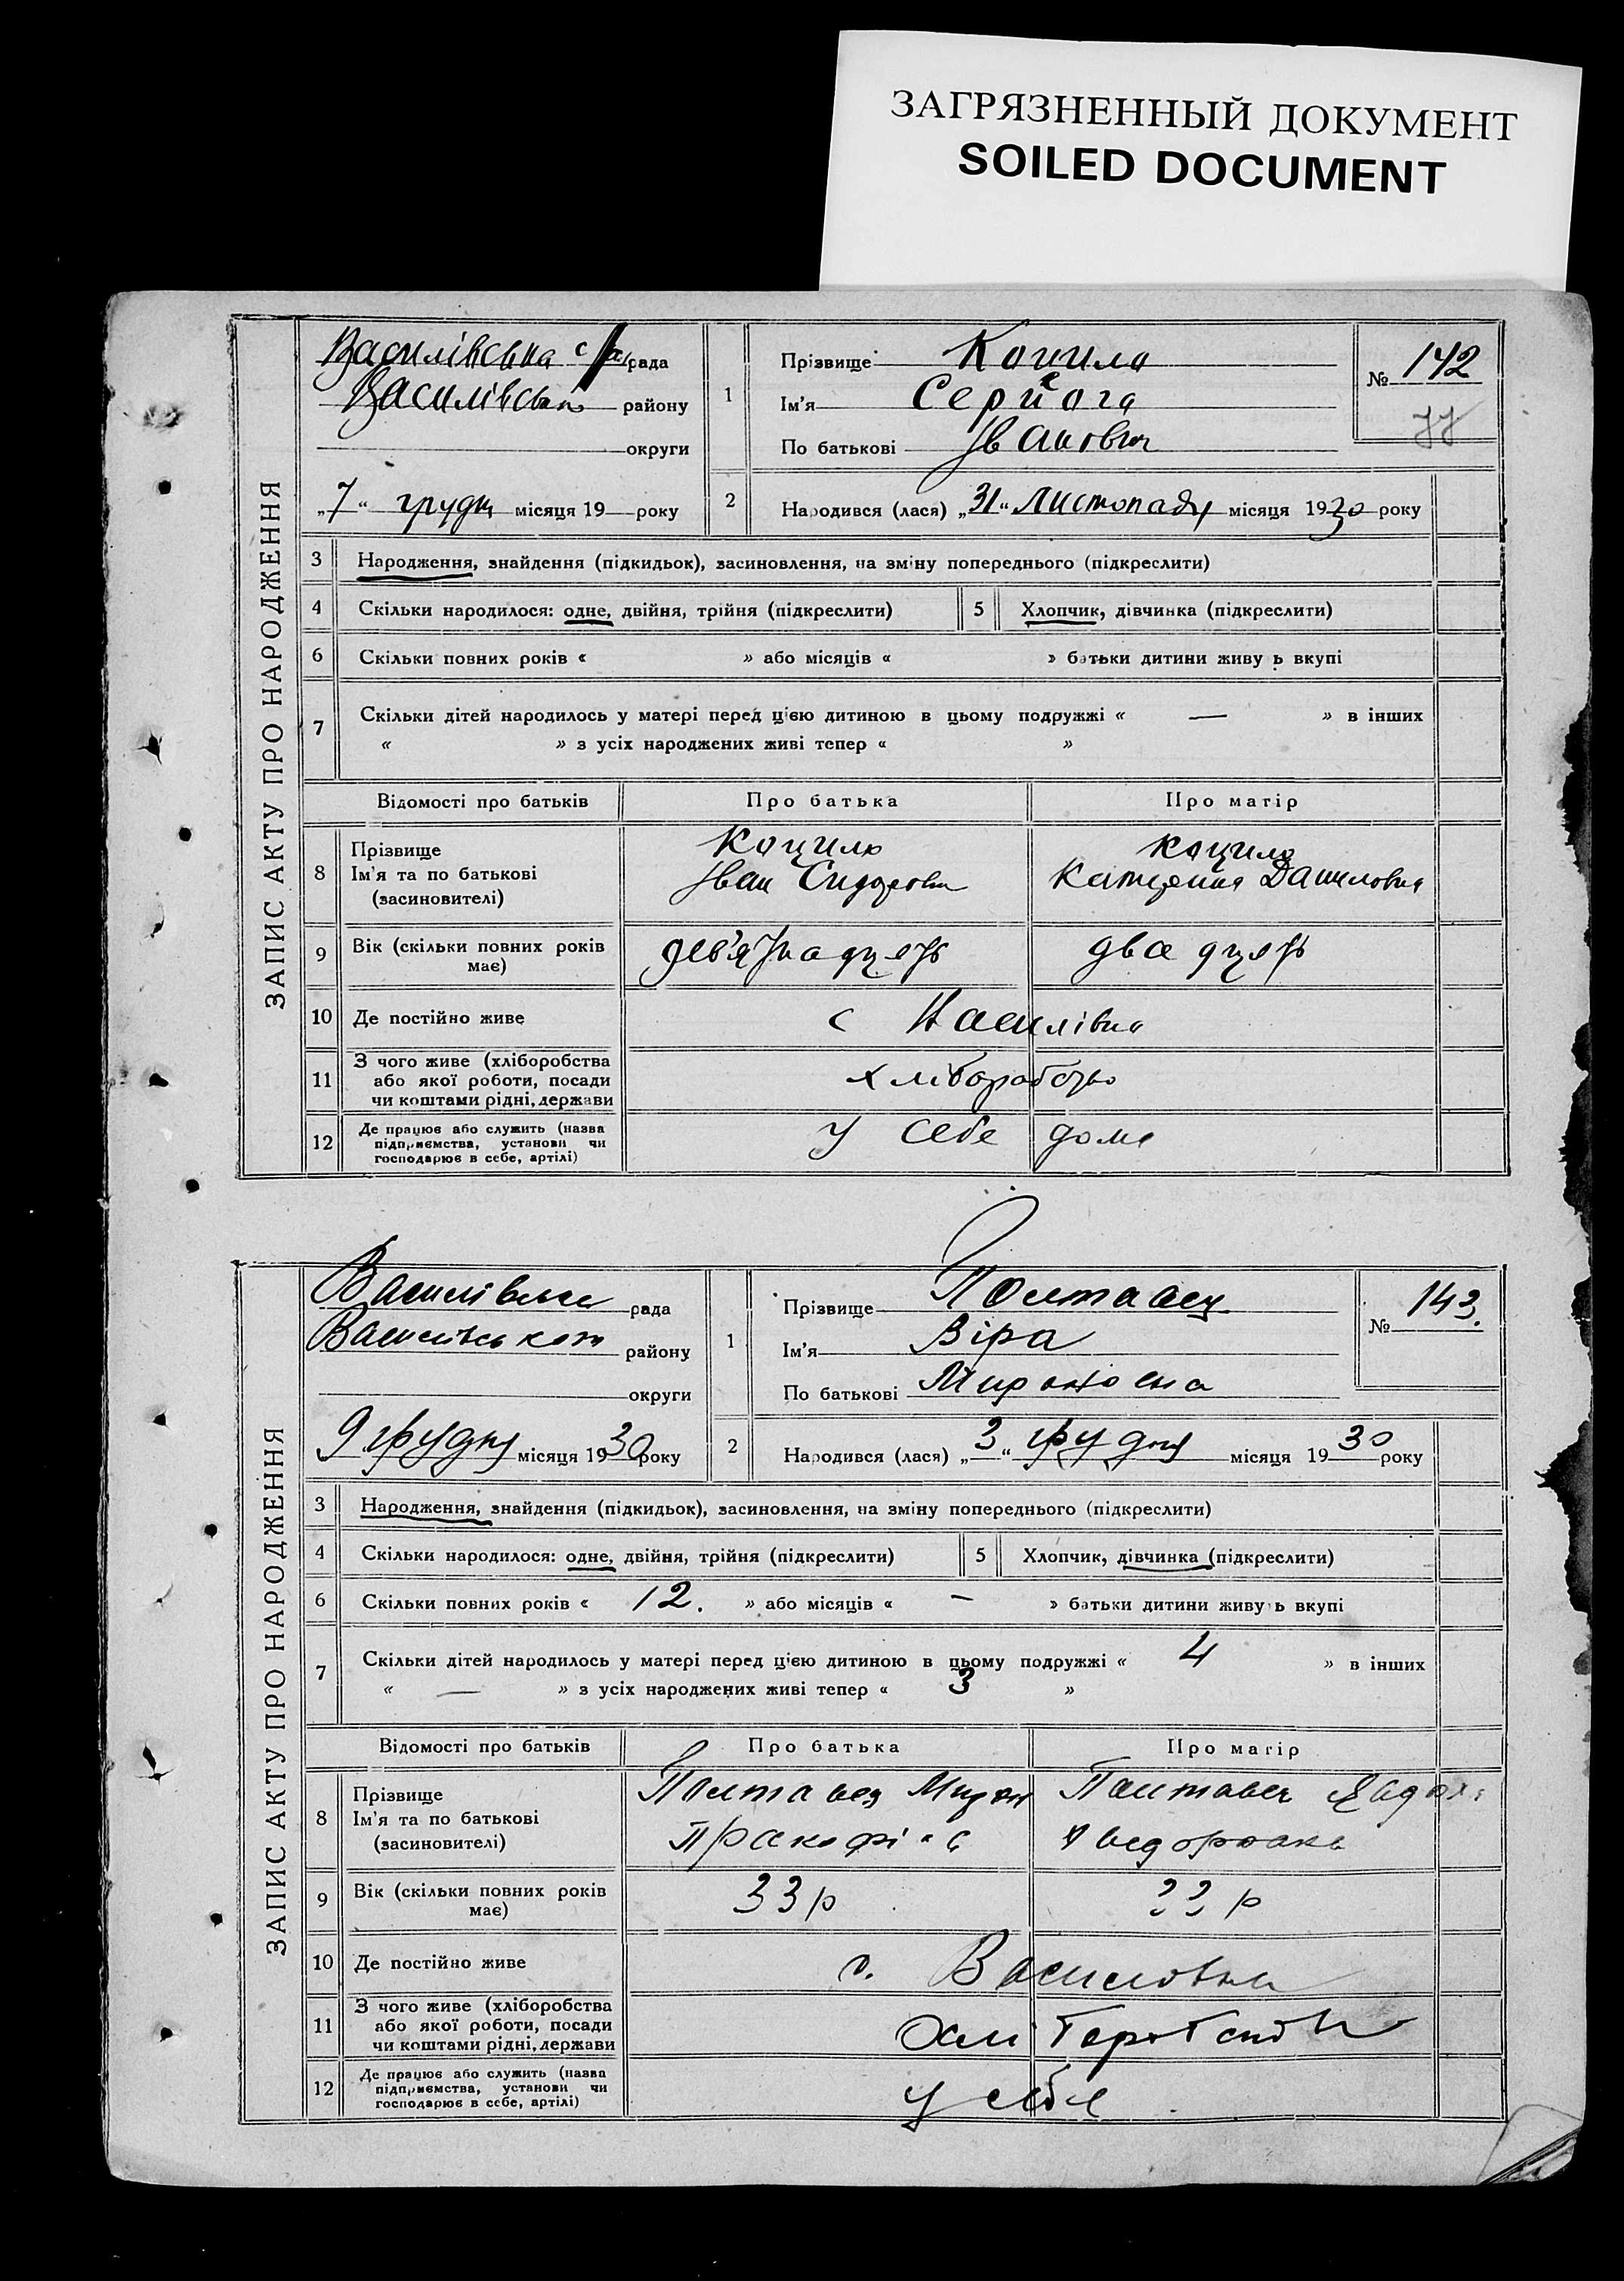 ЗАГРЯЗНЕННЫЙ ДОКУМЕНТ
SOILED DOCUMENT
ЗАПИС АКТУ ПРО НАРОДЖЕННЯ
Василівська с/р рада
Василівсько району
округи
„7“ грудн місяця 19 року
1
Прізвище Коцило
Ім'я Серйога
По батькові Іванович
№ 142
77
2 Народився (лася) „31“ Листопаду місяця 1930 року
3 Народження, знайдення (підкидьок), засиновлення, на зміну попереднього (підкреслити)
4 Скільки народилося: одне, двійня, трійня (підкреслити) 5 Хлопчик, дівчинка (підкреслити)
6 Скільки повних років « » або місяців « » батьки дитини живу ь вкупі
7 Скільки дітей народилось у матері перед цією дитиною в цьому подружжі « — » в інших
« » з усіх народжених живі тепер « »
Відомості про батьків Про батька Про матір
8 Прізвище Коцило Коцило
Ім'я та по батькові Іван Сидорови Катерина Даниловна
(засиновителі)
9 Вік (скільки повних років має) дев'ятнадцять двадцять
10 Де постійно живе с Василівка
11 З чого живе (хліборобства або якої роботи, посади чи коштами рідні, держави хліборобство
12 Де працює або служить (назва підприємства, установи чи господарює в себе, артілі) у себе дома
ЗАПИС АКТУ ПРО НАРОДЖЕННЯ
Василівська рада
Василівського району
округи
9 грудня місяця 1930 року
1
Прізвище Полтавец
Ім'я Віра
По батькові Мироновна
№ 143.
2 Народився (лася) „3“ грудня місяця 1930 року
3 Народження, знайдення (підкидьок), засиновлення, на зміну попереднього (підкреслити)
4 Скільки народилося: одне, двійня, трійня (підкреслити) 5 Хлопчик, дівчинка (підкреслити)
6 Скільки повних років « 12. » або місяців « – » батьки дитини живу ь вкупі
7 Скільки дітей народилось у матері перед цією дитиною в цьому подружжі « 4 » в інших
« — » з усіх народжених живі тепер « 3 »
Відомості про батьків Про батька Про матір
8 Прізвище Полтавец Мирон Полтавец
Ім'я та по батькові
(засиновителі)
9 Вік (скільки повних років має) 33 р 33 р
10 Де постійно живе с. Василовка
11 З чого живе (хліборобства або якої роботи, посади чи коштами рідні, держави
12 Де працює або служить (назва підприємства, установи чи господарює в себе, артілі) у себе